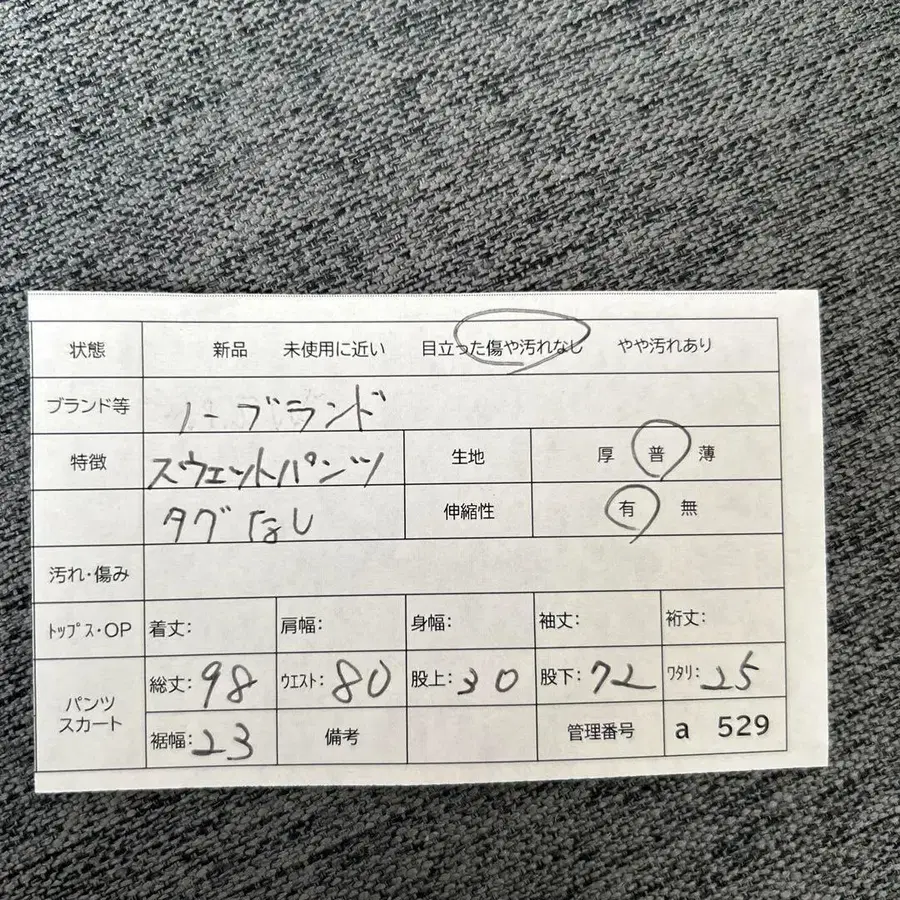 状態 新品 未使用に近い 目立った傷や汚れなし やや汚れあり
ブランド等 ノーブランド
特徴 スウェットパンツ 生地 厚 普 薄
タグなし 伸縮性 有 無
汚れ・傷み
ﾄｯﾌﾟｽ・OP 着丈: 肩幅: 身幅: 袖丈: 裄丈:
パンツ スカート 総丈: 98 ｳｴｽﾄ: 80 股上: 30 股下: 72 ﾜﾀﾘ: 25
裾幅: 23 備考 管理番号 a 529